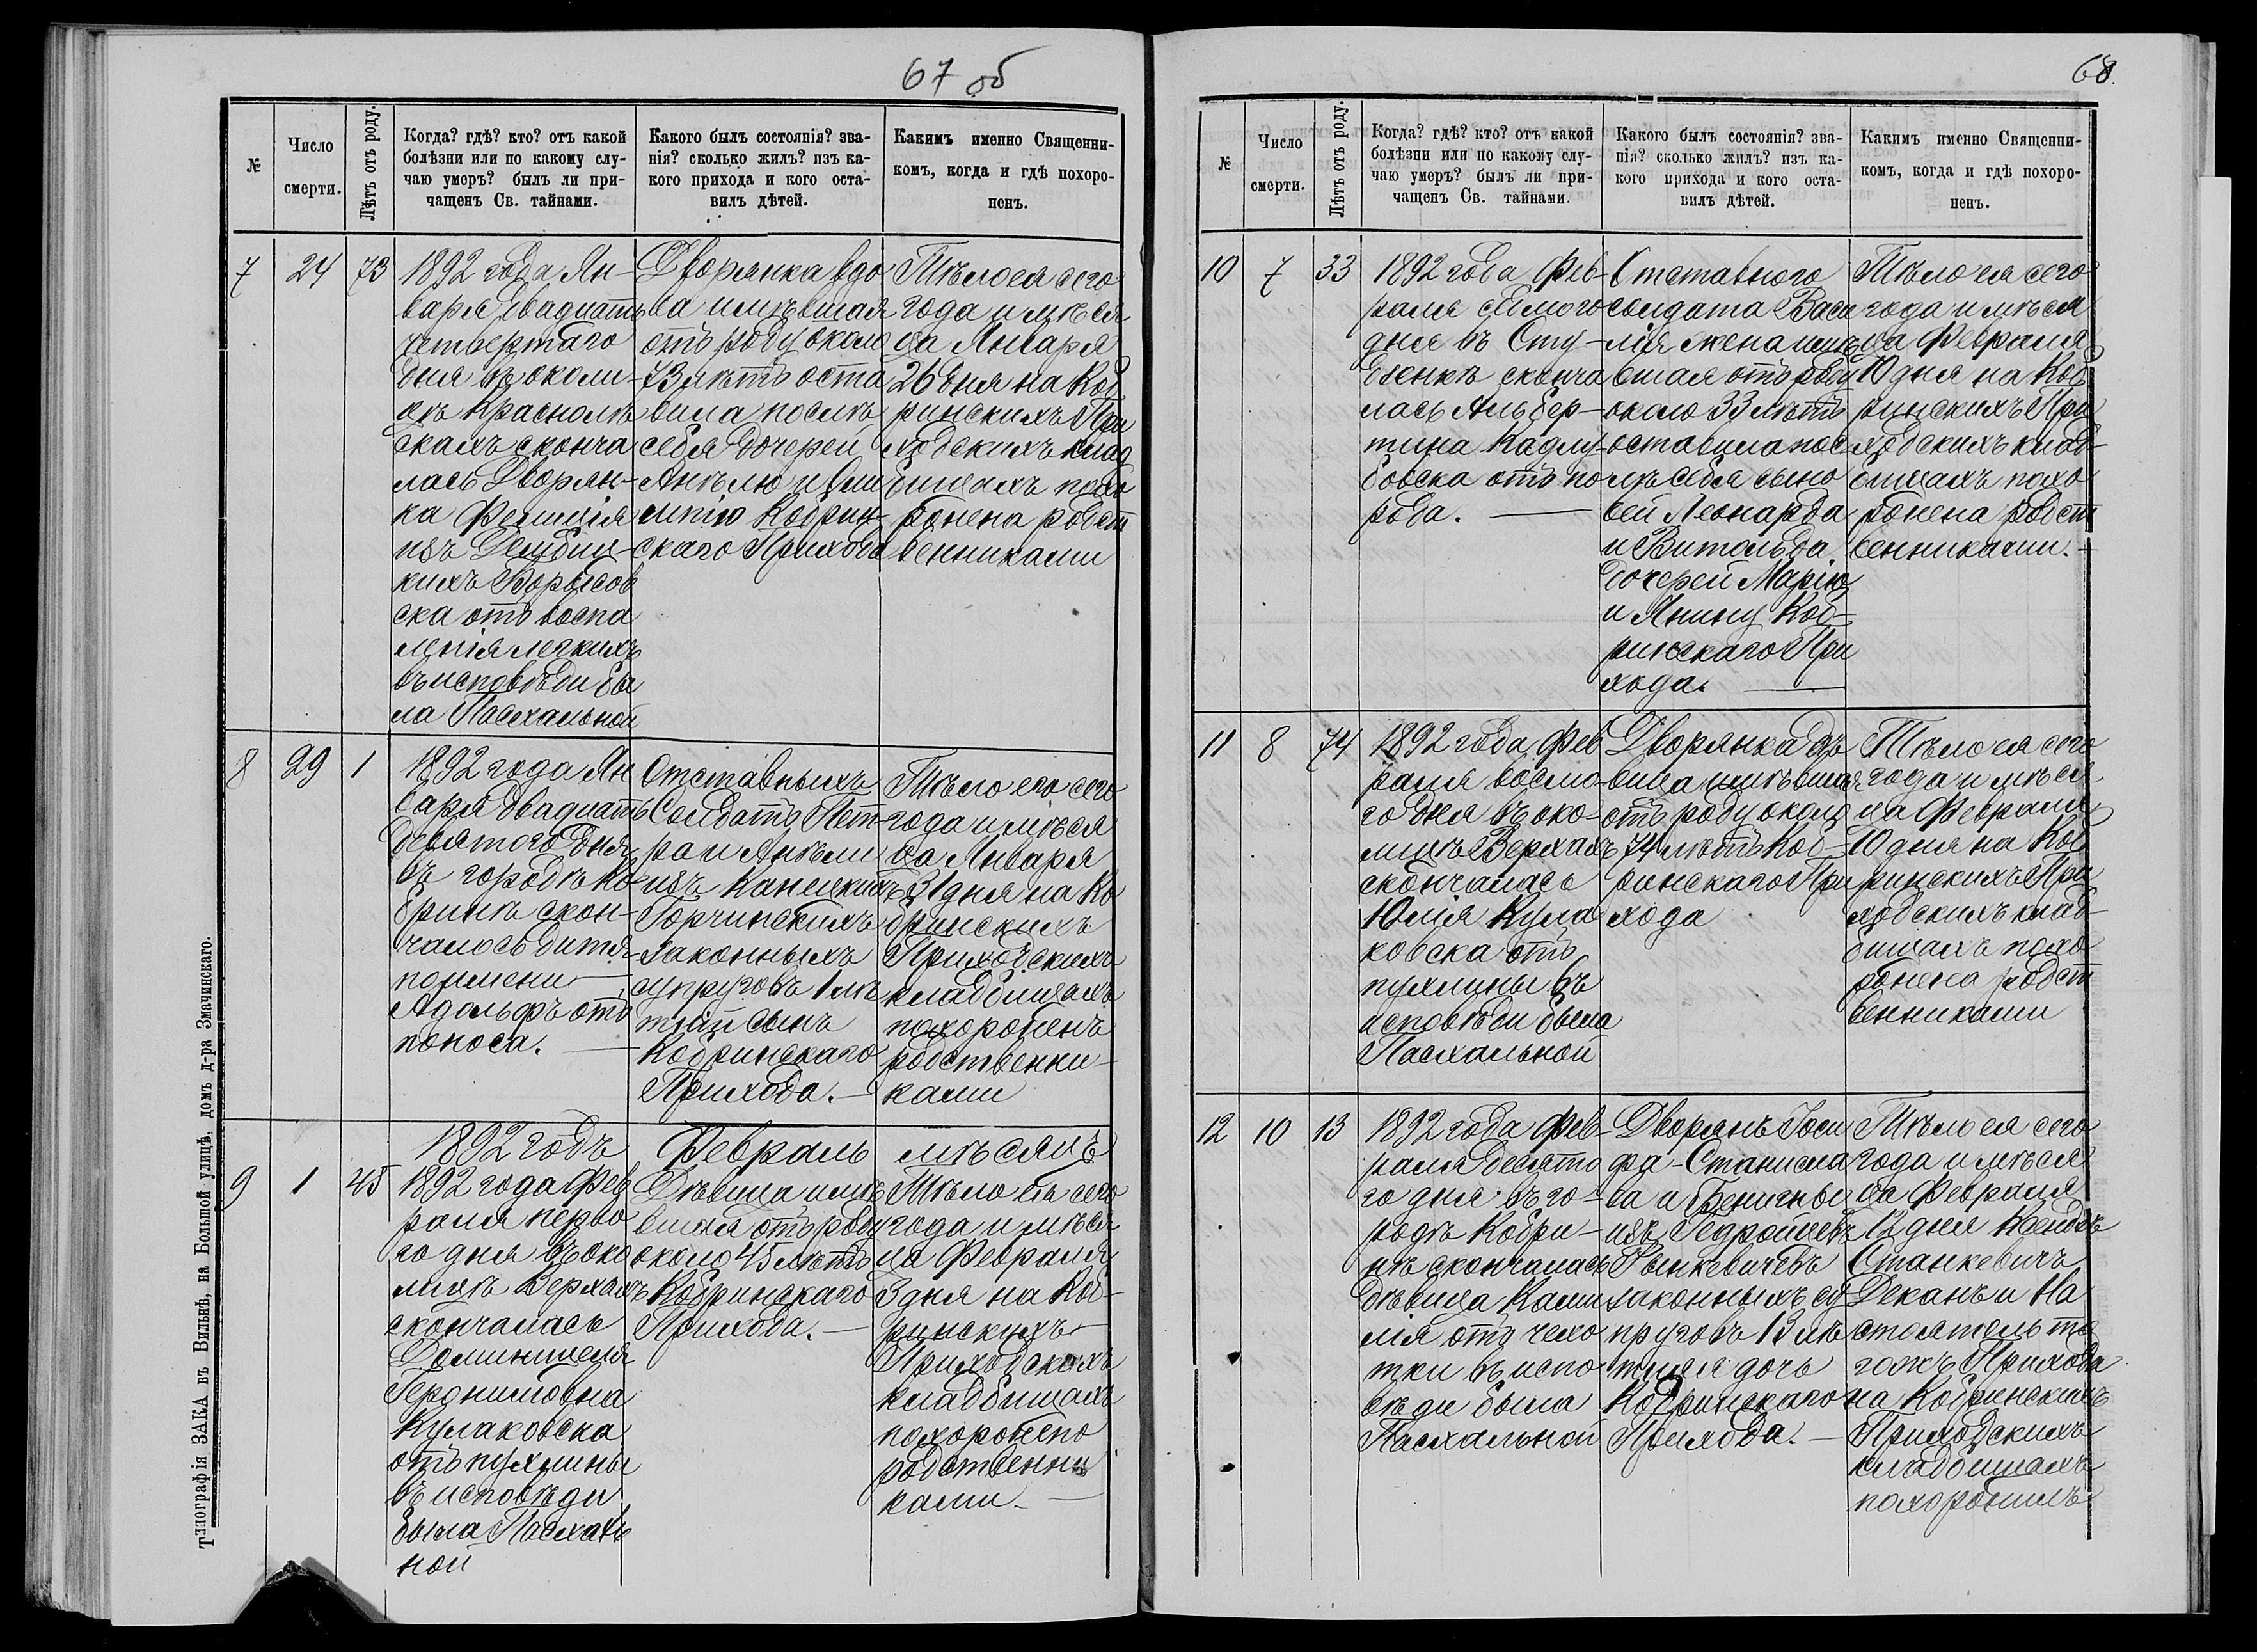 67 об
№
Число
смерти.
Лѣтъ отъ роду.
Когда? гдѣ? кто? отъ какой
болѣзни или по какому слу-
чаю умеръ? былъ ли при-
чащенъ Св. тайнами.
Какого былъ состоянія? зва-
нія? сколько жилъ? изъ ка-
кого прихода и кого оста-
вилъ дѣтей.
Какимъ именно Священни-
комъ, когда и гдѣ похоро-
ненъ.
7
24
73
1892 года Ян-
варя двадцать
четвертаго
дня въ околи-
скахъ сконча
лась Дворян-
ка Фелиція
изъ
кихъ Борысов
ска отъ воспа
ленія легкихъ
въ исповѣди бы
ла Пасхальной
Дворянка вдо
ва имѣвшая
отъ роду около
73 лѣтъ оста
вила послѣ
себя дочерей
Анѣлю и Эми
лію Кобрин-
скаго Прихода
Тѣло ея сего
года и мѣся
ца Января
26 дня на Коб
ринскихъ При
ходскихъ клад
бищахъ похо
ронена родст
венниками
8
29
1
1892 года Ян
варя двадцать
девятого дня
въ городѣ Ко
бринѣ скон-
чалось дитя
по имени
Адольфъ отъ
поноса.
Отставныхъ
Солдатъ Пет-
ра и Анѣли
изъ
Горчинскихъ
законныхъ
супруговъ 1 лѣ
тній сынъ
Кобринскаго
Прихода.
Тѣло его сего
года и мѣся
ца Января
31 дня на Ко
бринскихъ
Приходскихъ
кладбищахъ
похороненъ
родственни-
ками
1892 годъ Февраль мѣсяцъ
9
1
45
1892 года Фев
раля перво
го дня въ око
лицѣ Верхахъ
скончалась
Героnимовна
Кулаковска
отъ пухлины
въ исповѣди
была Пасхаль
ной
Дѣвица имѣ
вшая отъ роду
около 45 лѣтъ
Кобринскаго
Прихода.
Тѣло ея сего
года и мѣся
ца Февраля
3 дня на Коб-
ринскихъ
Приходскихъ
кладбищахъ
похоронено
родственни
ками
Типографія ЗАКА въ Вильнѣ, на Большой улицѣ, домъ д-ра Змачинскаго.
68.
№
Число
смерти.
Лѣтъ отъ роду.
Когда? гдѣ? кто? отъ какой
болѣзни или по какому слу-
чаю умеръ? былъ ли при-
чащенъ Св. тайнами.
Какого былъ состоянія? зва-
нія? сколько жилъ? изъ ка-
кого прихода и кого оста-
вилъ дѣтей.
Какимъ именно Священни-
комъ, когда и гдѣ похоро-
ненъ.
10
7
33
1892 года Фев-
раля седмого
дня въ Сту-
дзенкѣ сконча
лась Альбер-
тина Кадлу-
бовска отъ по
рода.
Отставного
солдата Васи
лія жена имѣ
вшая отъ роду
около 33 лѣтъ
оставила пос-
лѣ себя сыно
вей Леонарда
и Витольда
дочерей Марію
и Янину Коб-
ринскаго При
хода.
Тѣло ея сего
года и мѣся
ца Февраля
10 дня на Коб
ринскихъ При
ходскихъ клад-
бищахъ похо
ронена родст
венниками.
11
8
74
1892 года Фев
раля восмо-
го дня въ око-
лицѣ Верхахъ
скончалась
Юлія Кула
ковска отъ
пухлины въ
исповѣди была
Пасхальной
Дворянка дѣ
вица имѣвшая
отъ роду около
74 лѣтъ Коб-
ринскаго При
хода
Тѣло ея сего
года и мѣся
ца Февраля
10 дня на Коб
ринскихъ При
ходскихъ клад-
бищахъ похо
ронена родст
венниками
12
10
13
1892 года Фев-
раля десято
го дня въ го-
родѣ Кобри-
нѣ скончалась
дѣвица Ками
лія отъ чахо
тки въ испо
вѣди была
Пасхальной
Дворянъ Іоси
фа-Станисла
ва и Бенигны
изъ Гедройцевъ
законныхъ су
пруговъ 13 лѣ
тняя дочь
Кобринскаго
Прихода.
Тѣло ея сего
года и мѣся
ца Февраля
12 дня Ксендзъ
Станкевичъ
Деканъ и На
стоятель то
гожъ Прихода
на Кобринскихъ
Приходскихъ
кладбищахъ
похоронилъ